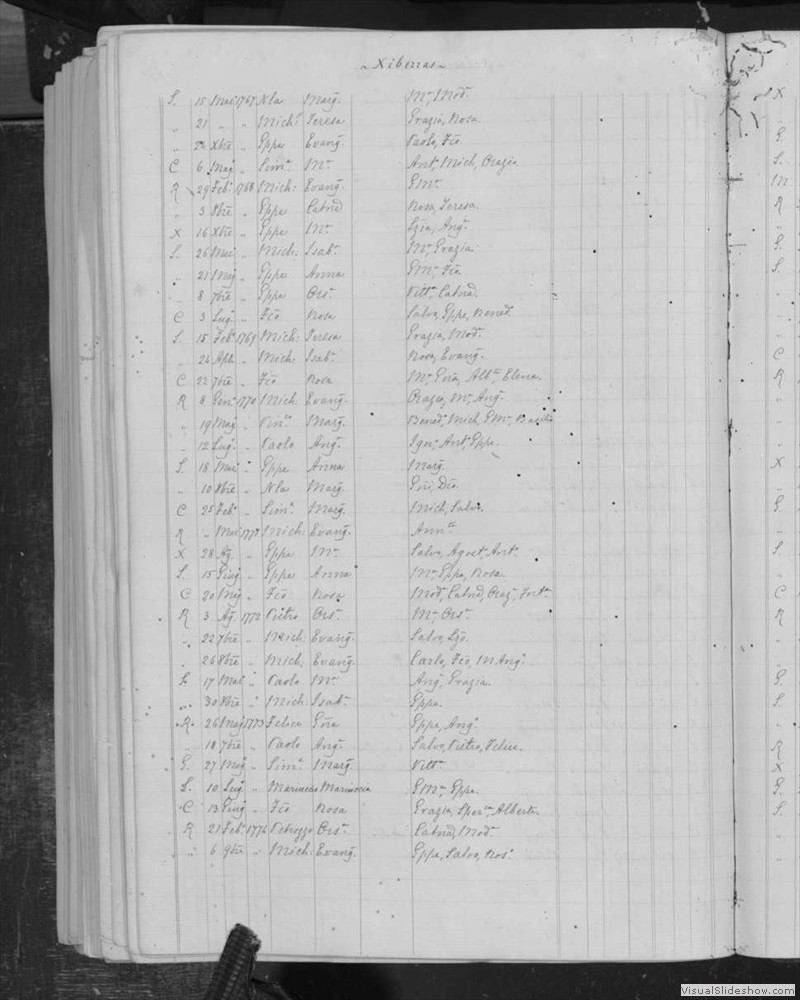 ~ Xiberras ~
S. 15 Mar. 1767 Nla Marg. Mª, Mod.
„ 21 „ „ Mich.l Teresa Grazia, Rosa
„ 24 Xbre „ Gppe Evang. Paolo, Fco
C 6 Mag „ Sim.ª Mª Ant. Mich, Orazia
R 29 Feb. 1768 Mich: Evang. GMª
„ 3 8bre „ Gppe Catnd Rosa, Teresa.
X 16 Xbre „ Gppe Mª Lzia, Ang.
S. 26 Mar. „ Mich: Isab. Mª Grazia
„ 21 Mag „ Gppe Anna GMª Fco
„ 8 7bre „ Gppe Ors. Vitt. Catnd.
C 3 Lug. „ Fco Rosa Salvo, Gppe, Bened.
S. 15 Feb. 1769 Mich: Teresa Grazia, Mod.
„ 24 Apl. „ Mich: Isab. Rosa, Evang.
C 22 7bre „ Fco Rosa Mª, Gña, Alb.ª, Elena.
R 8 Gen. 1770 Mich: Evang. Orazio, Mª, Ang.
„ 19 Mag „ Vin.ª Marg. Bened. Mich, GMª, Basili
„ 12 Lug. „ Paolo Ang. Ign. Ant. Gppe.
S. 18 Mar. „ Gppe Anna Marg.
„ 10 8bre „ Nla Marg. Gñi, Dco.
C 25 Feb. „ Sim.ª Marg. Mich, Salv.
R „ Mar. 1771 Mich: Evang. Ann.ª
X 28 Ag. „ Gppe Mª Salvo, Agost. Ant.
S. 15 Giug „ Gppe Anna Mª, Gppe, Rosa
C 20 Mag „ Fco Rosa Mod, Catnd, Oraz. Fort.
R 3 Ag. 1772 Pietro Ors. Mª, Ors.
„ 22 7bre „ Mich: Evang. Salvo, Lzo.
„ 26 8bre „ Mich: Evang. Carlo, Fco, M Ang.
S. 17 Mar. „ Paolo Mª Ang. Grazia.
„ 30 8bre „ Mich: Isab. Gppa.
R 26 Mag 1773 Felice Gña Gppe, Ang.
„ 18 7bre „ Paolo Ang. Salvo, Pietro, Felice.
G. 27 Mag „ Sim.ª Marg. Vitt.
S. 10 Lug. „ Marineao GMª, Gppa.
C 13 Giug „ Fco Rosa Grazia, Alberto.
R 21 Feb. 1774 Petruzzo Ors. Catnd, Mod.
„ 6 9bre „ Mich: Evang. Gppe, Salvo, Ros.
X
G.
S.
M
R
„
G.
S.
C
R
X
G.
S.
C
R
G.
S.
R
X
G.
S.
VisualSlideshow.com